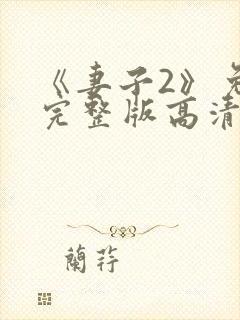 《妻子2》免
完整版高清
蘭荇